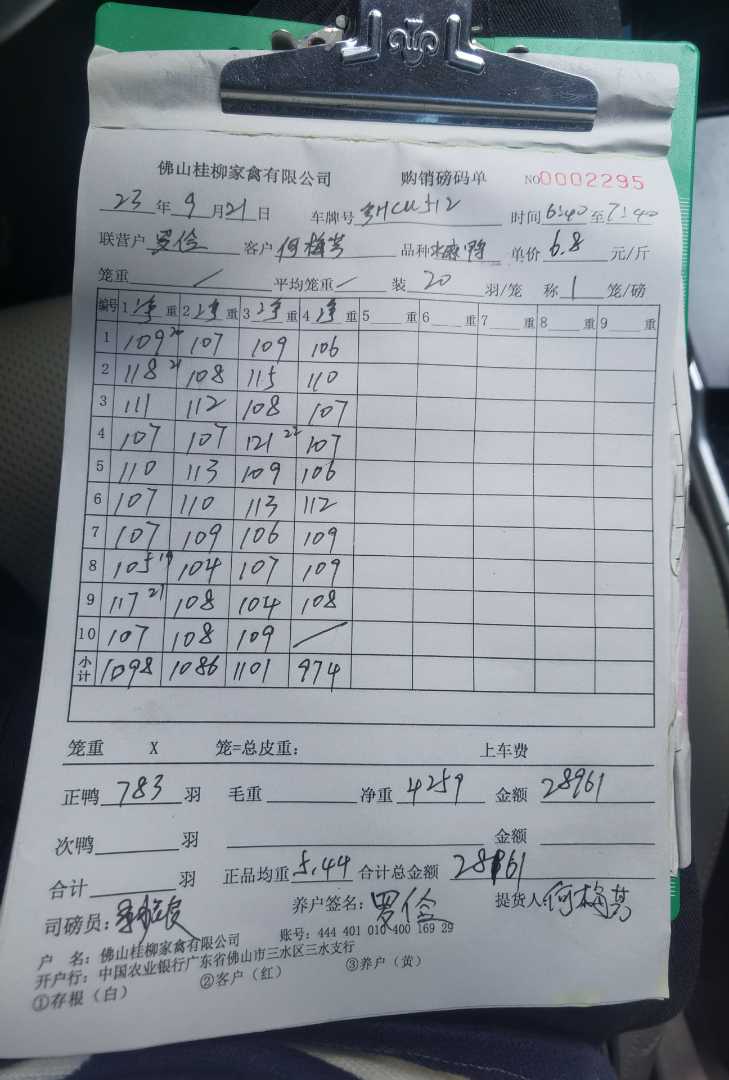 佛山桂柳家禽有限公司 购销磅码单 NO0002295
23年9月21日 车牌号 时间6:40至7:40
联营户罗俭 客户何梅芳 品种 单价6.8元/斤
笼重/ 平均笼重/ 装20羽/笼 称1笼/磅
编号 1净重 2净重 3净重 4净重 5重 6重 7重 8重 9重
1 109 20 107 109 106
2 118 21 108 115 110
3 111 112 108 107
4 107 107 121 22 107
5 110 113 109 106
6 107 110 113 112
7 107 109 106 109
8 105 19 104 107 109
9 117 21 108 104 108
10 107 108 109 /
小计 1098 1086 1101 974
笼重 X 笼=总皮重: 上车费
正鸭783羽 毛重 净重4259 金额28961
次鸭 羽 金额
合计 羽 正品均重5.44 合计总金额28961
司磅员: 养户签名:罗俭 提货人:何梅芳
户 名:佛山桂柳家禽有限公司 账号:444 401 010 400 169 29
开户行:中国农业银行广东省佛山市三水区三水支行
①存根(白) ②客户(红) ③养户(黄)